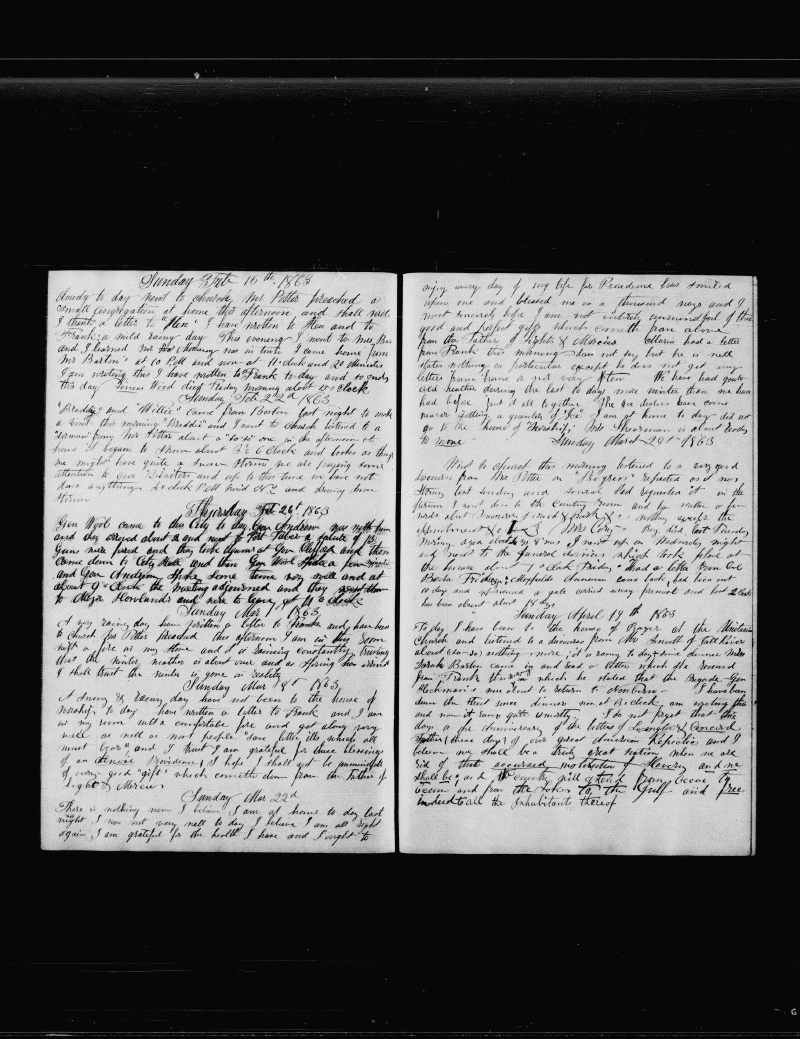 Sunday Feb 15th 1863
Cloudy to day went to church Mr Potter preached a
small congregation at home this afternoon and shall send
a letter to "Hen" I have written to Hen and to
Frank, a mild rainy day This evening I went to Mrs
and I learned Mr was in town I came home from
Mr Barton's at 10 P.M and now at 11 o'clock and 20 Minutes
I am writing this I have written to Frank to day and so ends
this day Wood died Friday morning about o'clock
Sunday Feb. 22d 1863
"Braddie" and "Willie" came from Boston last night to make
a visit this morning "Braddie" and I went to Church listened to a
Sermon from Mr Potter about a "so so" one in the afternoon at
home it began to Snow about 6 O Clock and looks as though
we might have quite a Snow Storm we are paying some
attention to our and up to this time we have not
done anything o clock P.M Wind N.E. and driving Snow
Storm
Thursday Feb 26th 1863
Gen Wool came to this City to day Gov Andrew was with him
and they arrived about 2 and went to Fort Taber a salute of 13
Guns were fired and they took dinner at Gov Clifford and then
came down to City Hall and then Gen Wool spoke a few minutes
and Gov Andrew spoke some time very well and at
about O Clock the meeting adjourned and they went then
to Major Howlands and were to leave at O Clock
Sunday Mar 1 1863
A very rainy day have written a letter to Frank and have been
to Church Mr Potter preached this afternoon I am in my room
with a fire in my Stove and it is raining constantly, trusting
that the winter weather is about over and as Spring has arrived
I shall trust the winter is gone in reality
Sunday Mar 8th 1863
A Snowy & rainy day have not been to the house of
worship to day have written a letter to Frank and I am
in my room with a comfortable fire and get along very
well as well as most people "Some little ills which all
must bear" and I trust I am grateful for these blessings
of an Divine Providence, I hope I shall not be unmindful
of every good "gift" which cometh down from the Father of
Light & Mercies
Sunday Mar 22d
There is nothing new I believe I am at home to day last
night I was not very well to day I believe I am all right
again, I am grateful for the health I have and I ought to
enjoy every day of my life for Providence has smiled
upon me and blessed me in a thousand ways and I
most sincerely hope I am not entirely unmindful of this
good and perfect gift which cometh from above
from the Father of Lights & Mercies Maria had a letter
from Frank this morning does not say but he is well
states nothing in particular except he does not get any
letters from home a not very often We have had quite
cold weather during the last 10 days more winter than we have
had before put all together The ice dealers have come
nearer getting a quantity of "Ice" I am at home to day did not
go to the "house of Worship," Mr Spearman is about ready
to move Sunday March 29th 1863
Went to church this morning listened to a very good
discourse from Mr Potter on "Progress" repeated as it was
Stormy last Sunday and several had requested it in the
afternoon I went down to the Counting Room and
about Snow & mud & back & nothing except the
&c Mr Coz Boy died last Tuesday
Morning aged about 8 mos I went up on Wednesday night
and went to the funeral services which took place at
the house about 1 o clock Friday read a letter from Geo
Barton Friday, Merrifields Chairman came back, had been out
10 day and received a gale arrived away foremost and lost 2 Boats
has been absent about 18 dys
Sunday April 19th 1863
To day I have been to the house of Prayer at the Unitarian
Church and listened to a discourse from Mr Smith of Fall River
about (so-so) nothing more, it is rainy to day since dinner Miss
Sarah Barton came in and read a letter which she received
from Frank in which he stated that the Brigade Gen
Heckman's was about to return to Newbern - I have been
down the street since dinner now at o clock, am writing this
and now it rains quite smartly I do not forget that this
day is the Anniversary of the battles of Lexington & Concord
"other, these days" of our great American Republic and I
believe we shall be a truly great nation when we are
rid of that accursed institution of Slavery and we
shall be and the country will extend from Ocean to
Ocean and from the Lakes to the Gulf and free
indeed to all the Inhabitants thereof